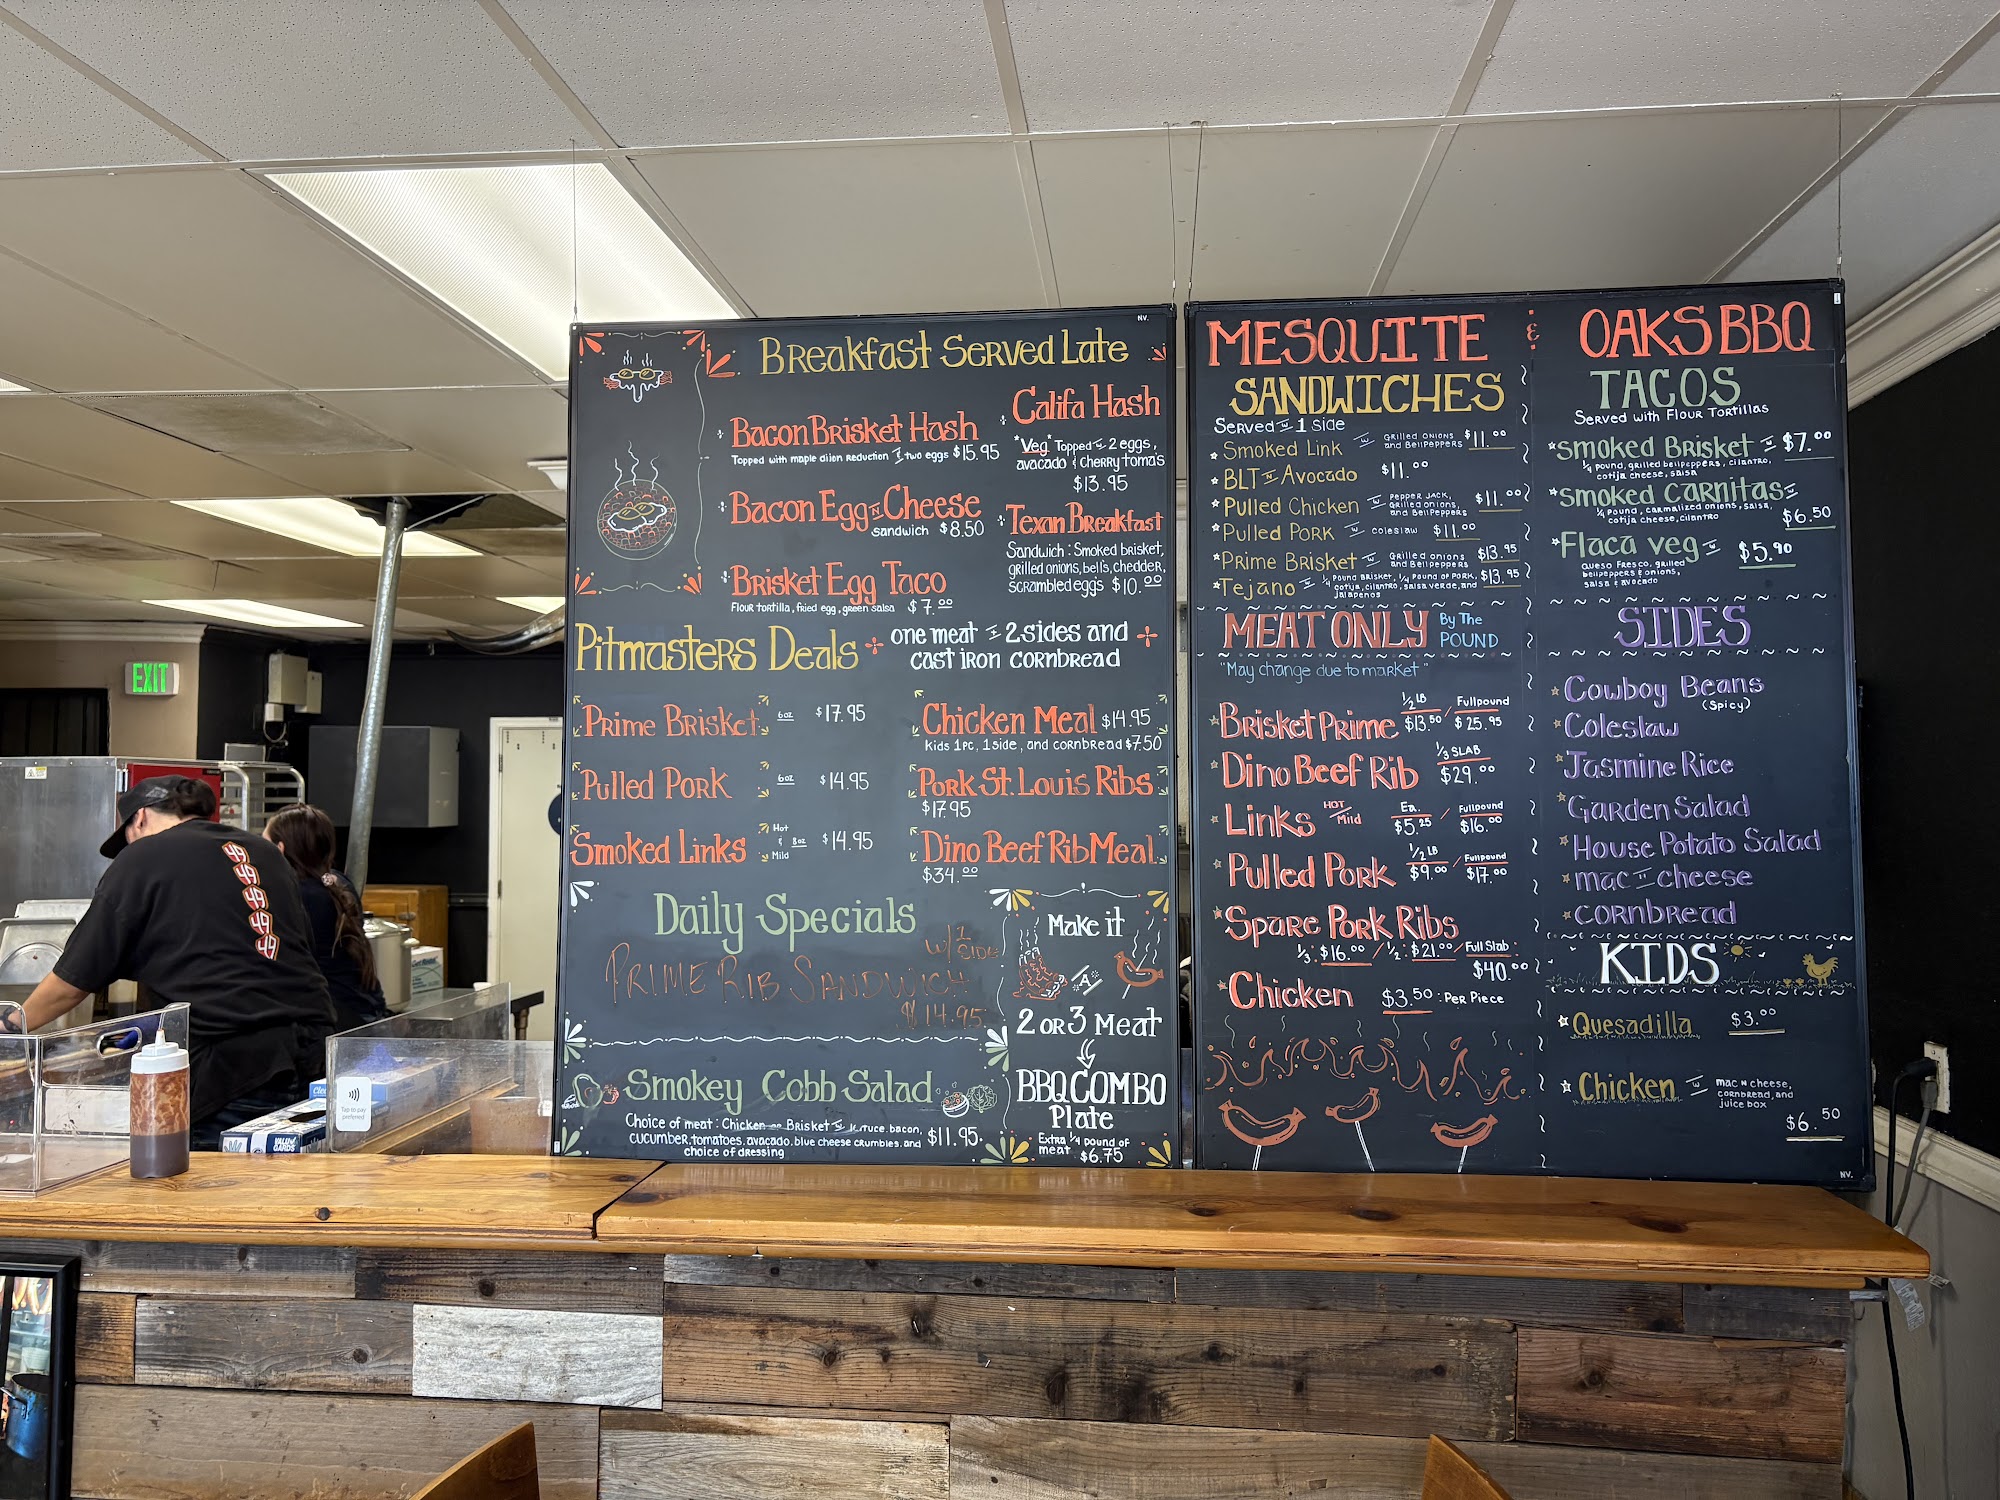 NV.
Breakfast Served Late
Bacon Brisket Hash
Topped with maple dijon reduction & two eggs $15.95
Bacon Egg N Cheese
sandwich $8.50
Brisket Egg Taco
Flour tortilla, fried egg, green salsa $7.00
Califa Hash
"Veg" Topped w 2 eggs,
avacado & cherry tomas
$13.95
Texan Breakfast
Sandwich: Smoked brisket,
grilled onions, bells, chedder,
scrambled eggs $10.00
Pitmasters Deals
one meat & 2 sides and
cast iron cornbread
Prime Brisket 6oz $17.95
Pulled Pork 6oz $14.95
Smoked Links Hot & Mild 8oz $14.95
Chicken Meal $14.95
kids 1pc, 1side, and cornbread $7.50
Pork St. Louis Ribs
$17.95
Dino Beef Rib Meal
$34.00
Daily Specials
Prime Rib Sandwich w/ 1 Side
$14.95
Smokey Cobb Salad
Choice of meat: Chicken or Brisket w bacon,
cucumber, tomatoes, avocado, blue cheese crumbles, and
choice of dressing
$11.95
Make it
A
2 or 3 Meat
BBQ COMBO
Plate
Extra 1/4 pound of
meat $6.75
MESQUITE & OAKS BBQ
SANDWICHES
Served w 1 side
Smoked Link w Grilled onions and Bellpeppers $11.00
BLT N Avocado $11.00
Pulled Chicken w Pepper Jack, grilled onions, and Bellpeppers $11.00
Pulled Pork w coleslaw $11.00
Prime Brisket w Grilled onions and Bellpeppers $13.95
Tejano w 1/4 Pound Brisket, 1/4 Pound of Pork, cotija, cilantro, salsa verde, and jalapenos $13.95
MEAT ONLY By The POUND
"May change due to market"
Brisket Prime 1/2 LB $13.50 / Fullpound $25.95
Dino Beef Rib 1/3 SLAB $29.00
Links HOT Mild Ea. $5.25 / Fullpound $16.00
Pulled Pork 1/2 LB $9.00 / Fullpound $17.00
Spare Pork Ribs
1/3: $16.00 / 1/2: $21.00 / Full Slab: $40.00
Chicken $3.50: Per Piece
TACOS
Served with Flour Tortillas
Smoked Brisket w $7.00
1/4 pound, grilled bellpeppers, cilantro,
cotija cheese, salsa
Smoked Carnitas w
1/4 Pound, carmalized onions, salsa,
cotija cheese, cilantro
$6.50
Flaca veg w $5.90
queso fresco, grilled
bellpeppers & onions,
salsa & avocado
SIDES
Cowboy Beans
(Spicy)
Coleslaw
Jasmine Rice
Garden Salad
House Potato Salad
mac N cheese
cornbread
KIDS
Quesadilla $3.00
Chicken w mac N cheese,
cornbread, and
juice box
$6.50
NV.
EXIT
49
49
49
49
49
Tap to pay
preferred